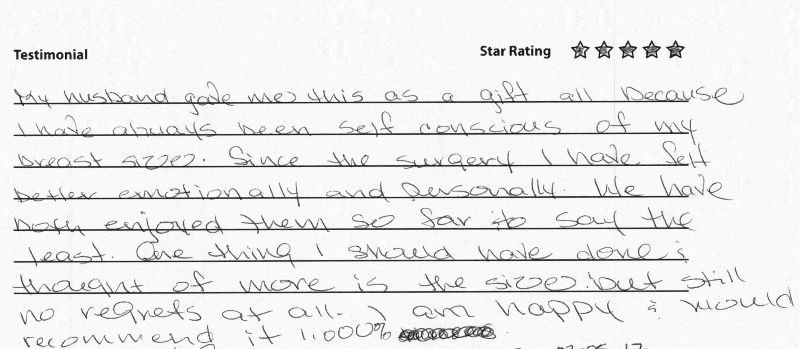 Testimonial Star Rating
My husband gave me this as a gift all because
I have always been self conscious of my
breast sizes. Since the surgery I have felt
better emotionally and personally. We have
both enjoyed them so far to say the
least. One thing I should have done &
thought of more is the sizes. but still
no regrets at all. I am happy & would
recommend it 1.000%